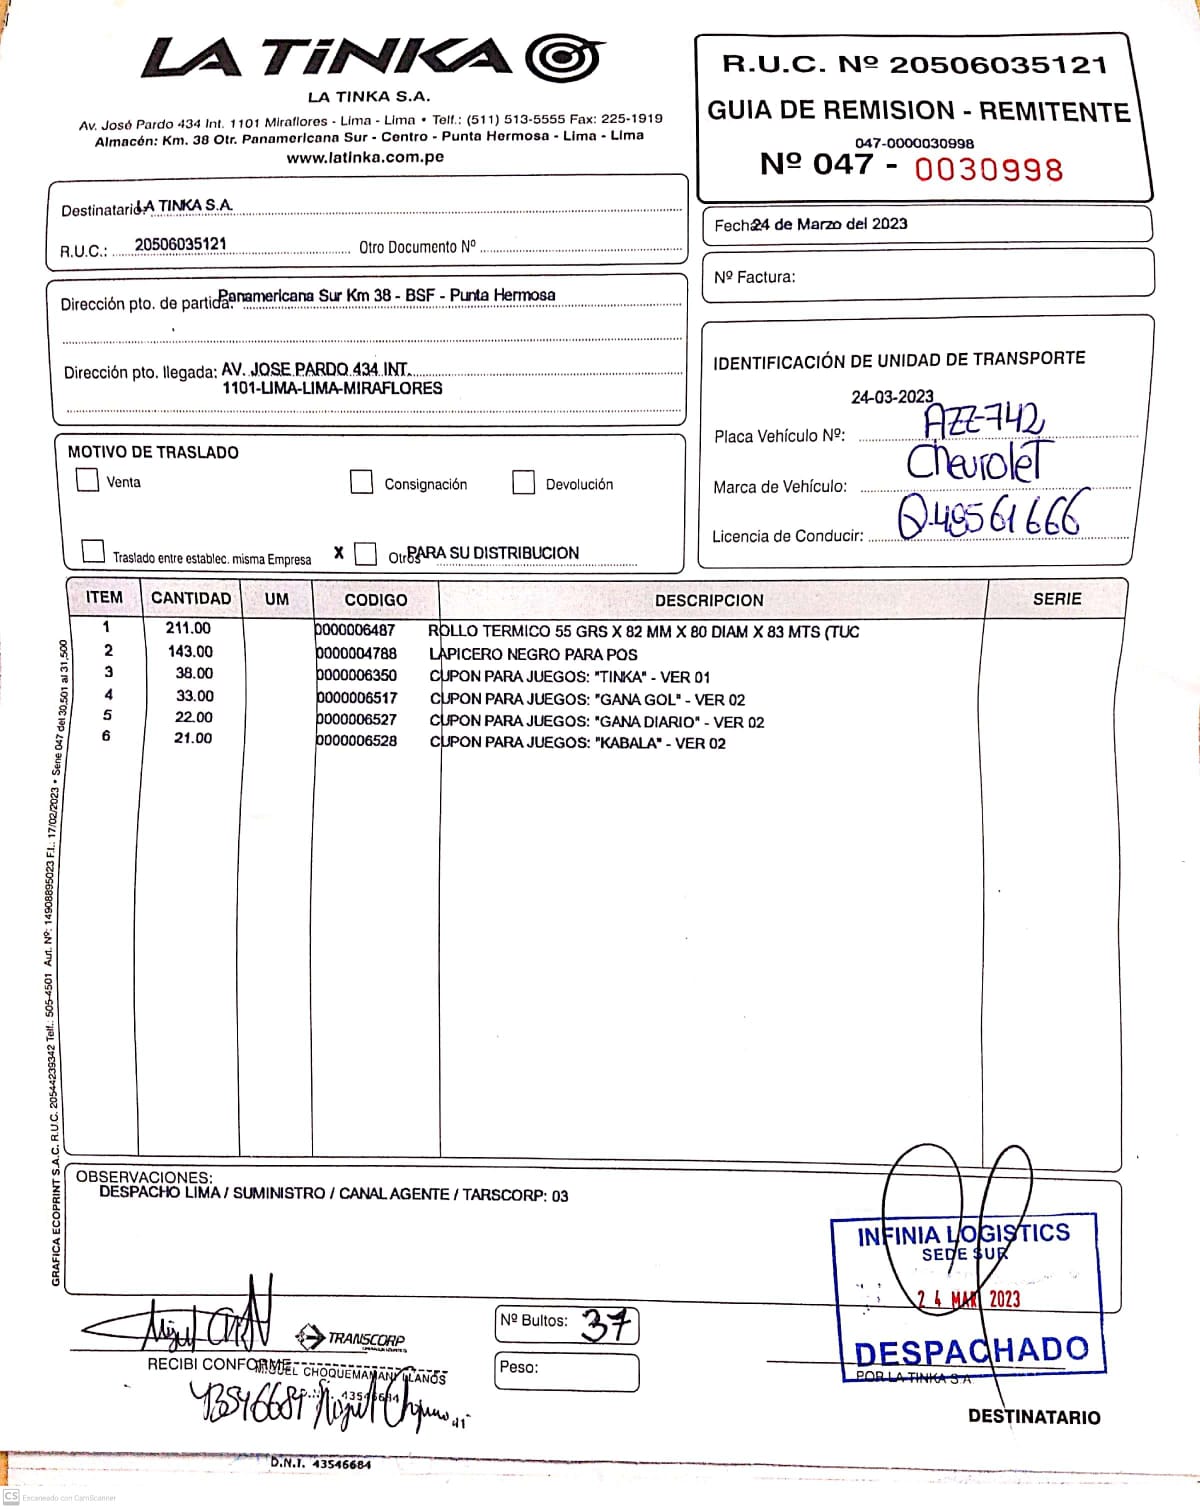 LA TiNKA
LA TINKA S.A.
Av. José Pardo 434 Int. 1101 Miraflores - Lima - Lima • Telf.: (511) 513-5555 Fax: 225-1919
Almacén: Km. 38 Otr. Panamericana Sur - Centro - Punta Hermosa - Lima - Lima
www.latinka.com.pe
R.U.C. Nº 20506035121
GUIA DE REMISION - REMITENTE
047-0000030998
Nº 047 - 0030998
Destinatario: LA TINKA S.A.
R.U.C.: 20506035121 Otro Documento Nº
Fecha: 24 de Marzo del 2023
Nº Factura:
Dirección pto. de partida: Panamericana Sur Km 38 - BSF - Punta Hermosa
Dirección pto. llegada: AV. JOSE PARDO 434 INT.
1101-LIMA-LIMA-MIRAFLORES
IDENTIFICACIÓN DE UNIDAD DE TRANSPORTE
24-03-2023
Placa Vehículo Nº: AZZ-742
Marca de Vehículo: Chevrolet
Licencia de Conducir: Q48561666
MOTIVO DE TRASLADO
Venta Consignación Devolución
Traslado entre establec. misma Empresa X Otros PARA SU DISTRIBUCION
ITEM CANTIDAD UM CODIGO DESCRIPCION SERIE
1 211.00 0000006487 ROLLO TERMICO 55 GRS X 82 MM X 80 DIAM X 83 MTS (TUC
2 143.00 0000004788 LAPICERO NEGRO PARA POS
3 38.00 0000006350 CUPON PARA JUEGOS: "TINKA" - VER 01
4 33.00 0000006517 CUPON PARA JUEGOS: "GANA GOL" - VER 02
5 22.00 0000006527 CUPON PARA JUEGOS: "GANA DIARIO" - VER 02
6 21.00 0000006528 CUPON PARA JUEGOS: "KABALA" - VER 02
GRAFICA ECOPRINT S.A.C. R.U.C. 20544239342 Telf.: 505-4501 Aut. Nº: 14908895023 F.I.: 17/02/2023 • Serie 047 del 30,501 al 31,500
OBSERVACIONES:
DESPACHO LIMA / SUMINISTRO / CANAL AGENTE / TARSCORP: 03
INFINIA LOGISTICS
SEDE SUR
24 MAR 2023
DESPACHADO
POR LA TINKA S.A.
DESTINATARIO
Nº Bultos: 37
Peso:
TRANSCORP
RECIBI CONFORME
MIGUEL CHOQUEMAMANI LLANOS
43546684
43546684
D.N.I. 43546684
CS Escaneado con CamScanner